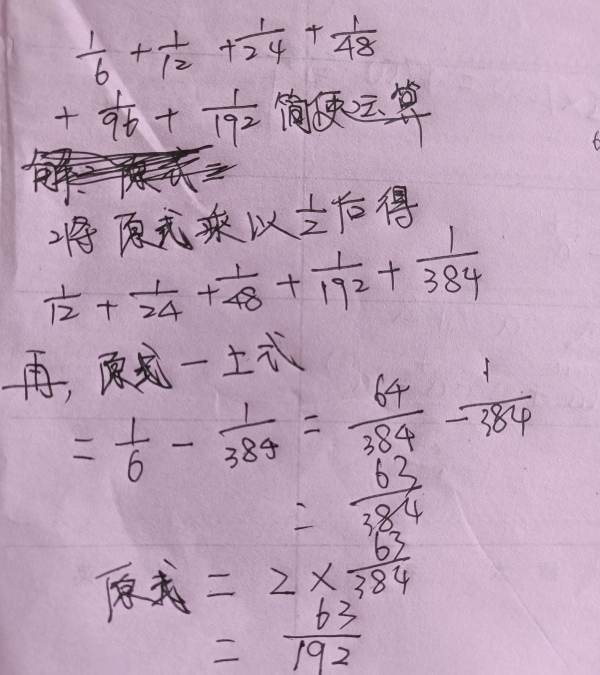 1/6 + 1/12 + 1/24 + 1/48
+ 1/96 + 1/192 简便运算
解: 原式=
将原式乘以1/2后得
1/12 + 1/24 + 1/48 + 1/192 + 1/384
再, 原式-上式
= 1/6 - 1/384 = 64/384 - 1/384
= 63/384
原式 = 2 × 63/384
= 63/192